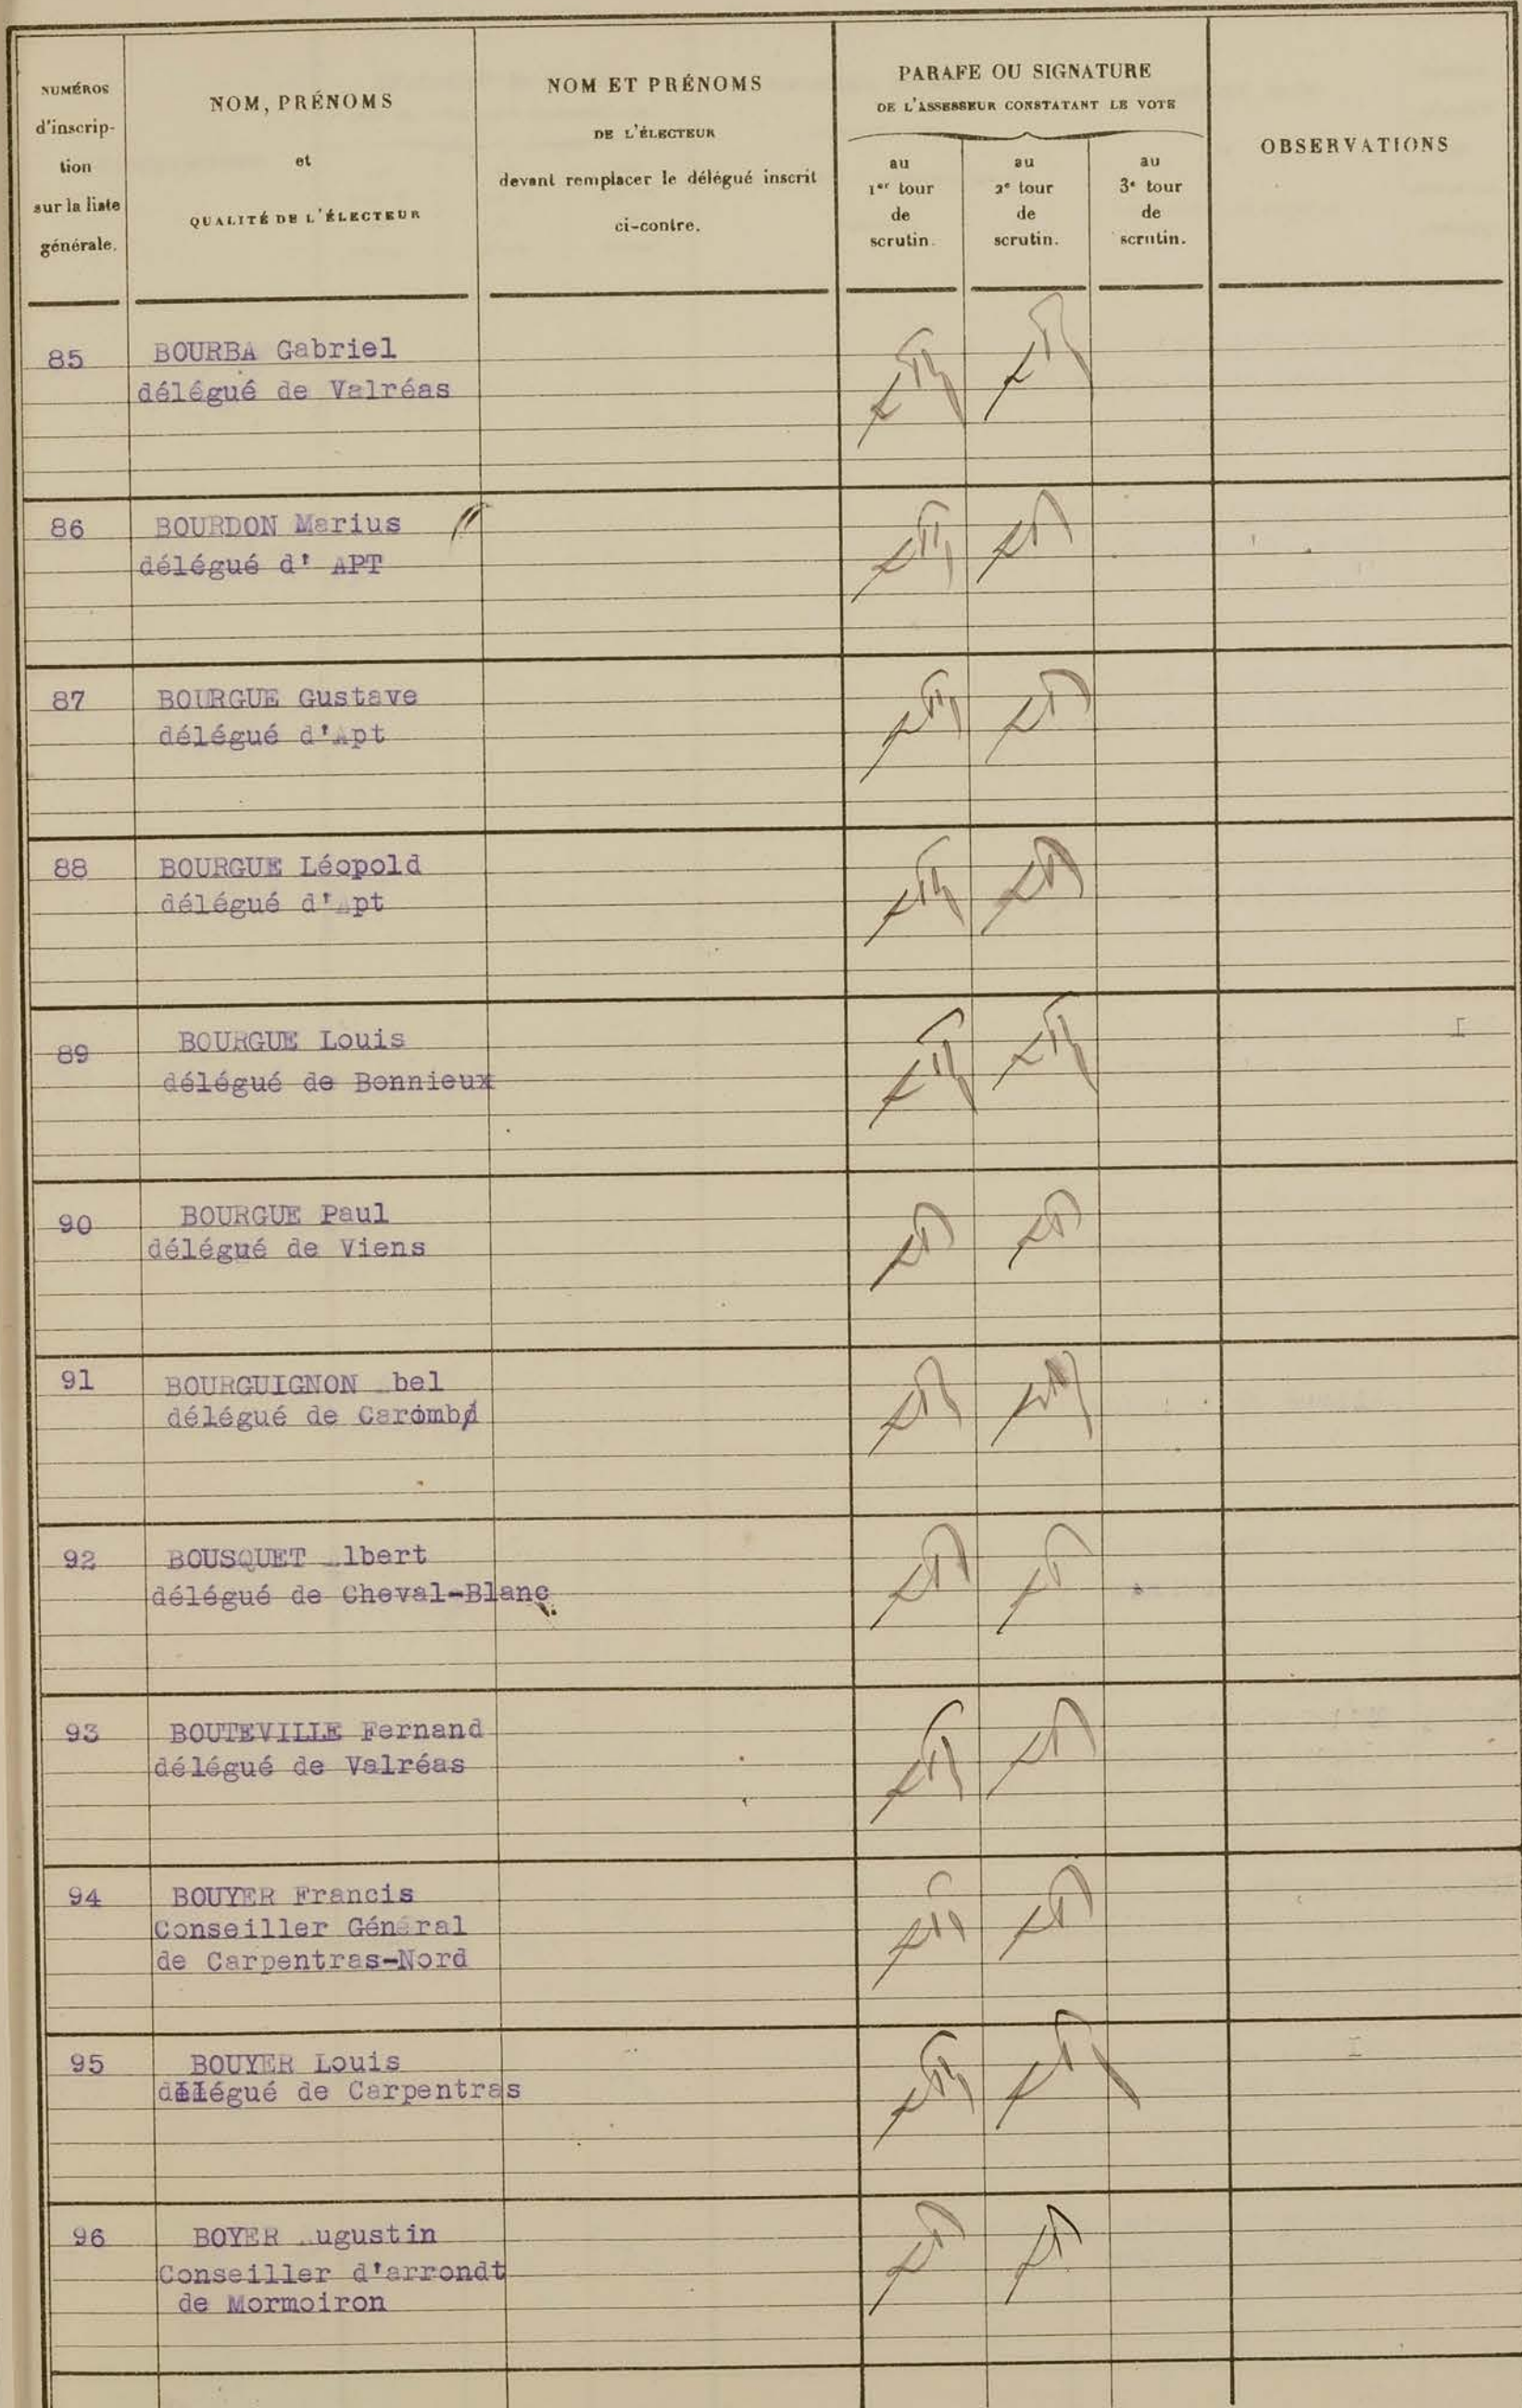 NUMÉROS
d'inscrip-
tion
sur la liste
générale.
NOM, PRÉNOMS
et
QUALITÉ DE L'ÉLECTEUR
NOM ET PRÉNOMS
DE L'ÉLECTEUR
devant remplacer le délégué inscrit
ci-contre.
PARAFE OU SIGNATURE
DE L'ASSESSEUR CONSTATANT LE VOTE
au
1er tour
de
scrutin.
au
2e tour
de
scrutin.
au
3e tour
de
scrutin.
OBSERVATIONS
85 BOURBA Gabriel
délégué de Valréas
86 BOURDON Marius
délégué d' APT
87 BOURGUE Gustave
délégué d'Apt
88 BOURGUE Léopold
délégué d'Apt
89 BOURGUE Louis
délégué de Bonnieux
90 BOURGUE Paul
délégué de Viens
91 BOURGUIGNON bel
délégué de Caromb
92 BOUSQUET lbert
délégué de Cheval-Blanc
93 BOUTEVILLE Fernand
délégué de Valréas
94 BOUYER Francis
Conseiller Général
de Carpentras-Nord
95 BOUYER Louis
délégué de Carpentras
96 BOYER ugustin
Conseiller d'arrondt
de Mormoiron